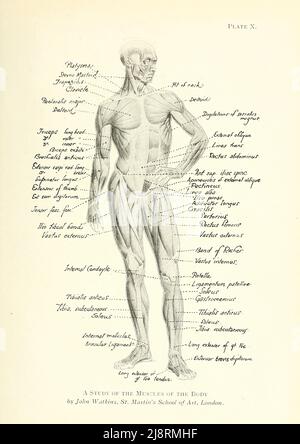 PLATE X.
Platysma
Sterno Mastoid
Trapezius
Clavicle
Pectoralis major
Deltoid
Triceps long head
outer
inner
Biceps
Brachialis anticus
Supinator longus
Extensor of thumb
Ext com digitorum
Ilio tibial band
Vastus externus
Internal Condyle
Tibialis anticus
Tibia, subcutaneous
Soleus
Internal malleolus
Annular ligament
Pit of neck
Deltoid
Digitations of serratus
magnus
External oblique
Linea trans
Rectus abdominis
Ant sup iliac spine
Aponeurosis of external oblique
Pectineus
Linea alba
Adductor longus
Gracilis
Sartorius
Rectus femoris
Vastus externus
Band of Richer
Vastus internus
Patella
Ligamentum patellae
Soleus
Gastrocnemius
Tibialis anticus
Soleus
Tibia subcutaneous
Long extensor of gt toe
Extensor brevis digitorum
Long extensor of
gt toe tendon
A STUDY OF THE MUSCLES OF THE BODY
by John Watkins, St. Martin's School of Art, London.
alamy
Image ID: 2J8RMHF
www.alamy.com